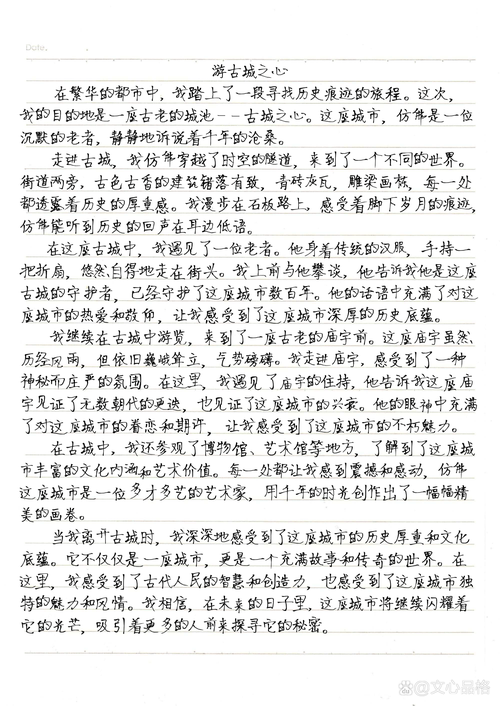 Date.
游古城之心
在繁华的都市中，我踏上了一段寻找历史痕迹的旅程。这次，
我的目的地是一座古老的城池--古城之心。这座城市，仿佛是一位
沉默的老者，静静地诉说着千年的沧桑。
走进古城，我仿佛穿越了时空的隧道，来到了一个不同的世界。
街道两旁，古色古香的建筑错落有致，青砖灰瓦，雕梁画栋，每一处
都透露着历史的厚重感。我漫步在石板路上，感受着脚下岁月的痕迹，
仿佛能听到历史的回声在耳边低语。
在这座古城中，我遇见了一位老者。他身着传统的汉服，手持一
把折扇，悠然自得地走在街头。我上前与他攀谈，他告诉我他是这座
古城的守护者，已经守护了这座城市数百年。他的话语中充满了对这
座城市的热爱和敬仰，让我感受到了这座城市深厚的历史底蕴。
我继续在古城中游览，来到了一座古老的庙宇前。这座庙宇虽然
历经风雨，但依旧巍峨耸立，气势磅礴。我走进庙宇，感受到了一种
神秘而庄严的氛围。在这里，我遇见了庙宇的住持，他告诉我这座庙
宇见证了无数朝代的更迭，也见证了这座城市的兴衰。他的眼神中充满
了对这座城市的眷恋和期许，让我感受到了这座城市的不朽魅力。
在古城中，我还参观了博物馆、艺术馆等地方，了解到了这座城
市丰富的文化内涵和艺术价值。每一处都让我感到震撼和感动，仿佛
这座城市是一位多才多艺的艺术家，用千年的时光创作出了一幅幅精
美的画卷。
当我离开古城时，我深深地感受到了这座城市的历史厚重和文化
底蕴。它不仅仅是一座城市，更是一个充满故事和传奇的世界。在
这里，我感受到了古代人民的智慧和创造力，也感受到了这座城市独
特的魅力和风情。我相信，在未来的日子里，这座城市将继续闪耀着
它的光芒，吸引着更多的人前来探寻它的秘密。
@文心品格